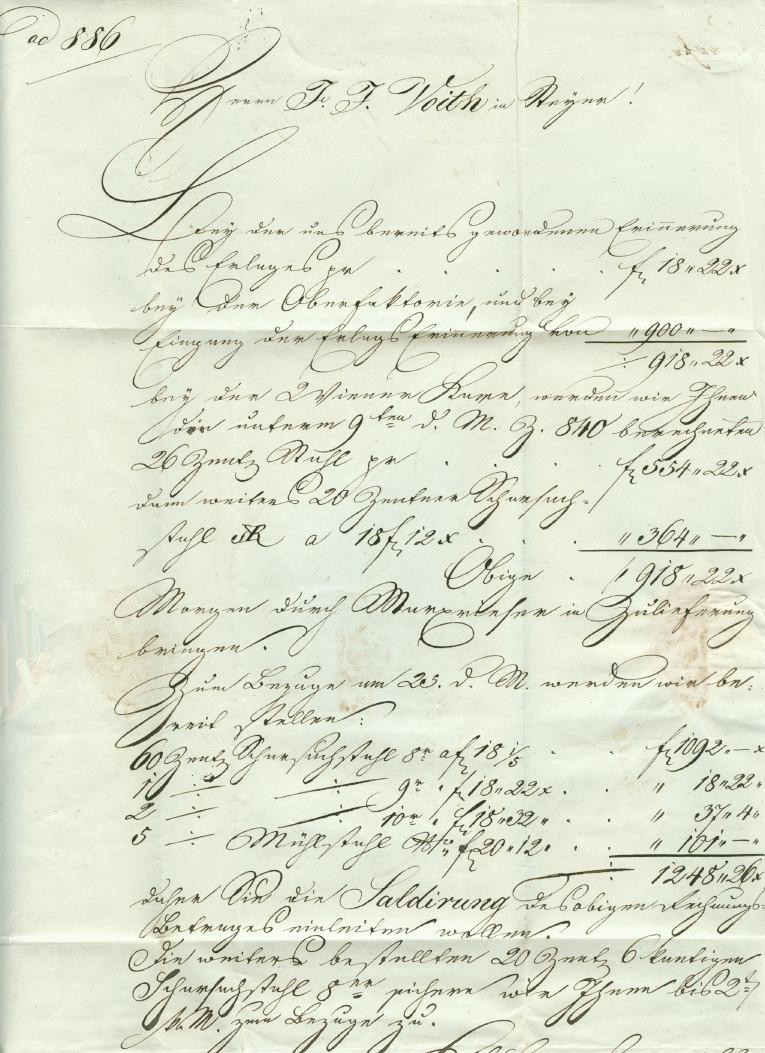 ad 886
Herrn J. F. Voith in Steyer!
Bey der uns bereits gewordenen Erinnerung
des Erlages pr . . . . . f 18 „ 22 x
bey der Oberfaktorie, und bey
Eingang der Erlags Erinerung von „ 900 „ — „
÷ 918 „ 22 x
bey der Wiener Kasse, werden wir Ihnen
die unterm 9ten d. M. Z. 840 berechneten
26 Zent Stahl pr . . . f 554 „ 22 x
dann weiters 20 Zentner Scharsach-
stahl a 18 f 12 x . . . „ 364 „ — „
Obige . f 918 „ 22 x
Morgen durch in Zulieferung
bringen.
Zum Bezuge am 25. d. M. werden wir be-
reit stellen:
60 Zent Scharsachstahl 8r a f 18 1/5 . . f 1092 „ — x
1 ÷ ÷ 9r „ f 18 „ 22 x . . „ 18 „ 22 „
2 ÷ ÷ 10r „ f 18 „ 32 „ . . „ 37 „ 4 „
5 ÷ Mühlstahl f 20 „ 12 „ . „ 101 „ — „
÷ 1248 „ 26 x
daher Sie die Saldirung des obigen Rechnungs-
Betrages einleiten wollen.
Die weiters bestellten 20 Zent 6 kantigen
Scharsachstahl 8er sichern wir Ihnen bis 2t
k. M. zum Bezuge zu.